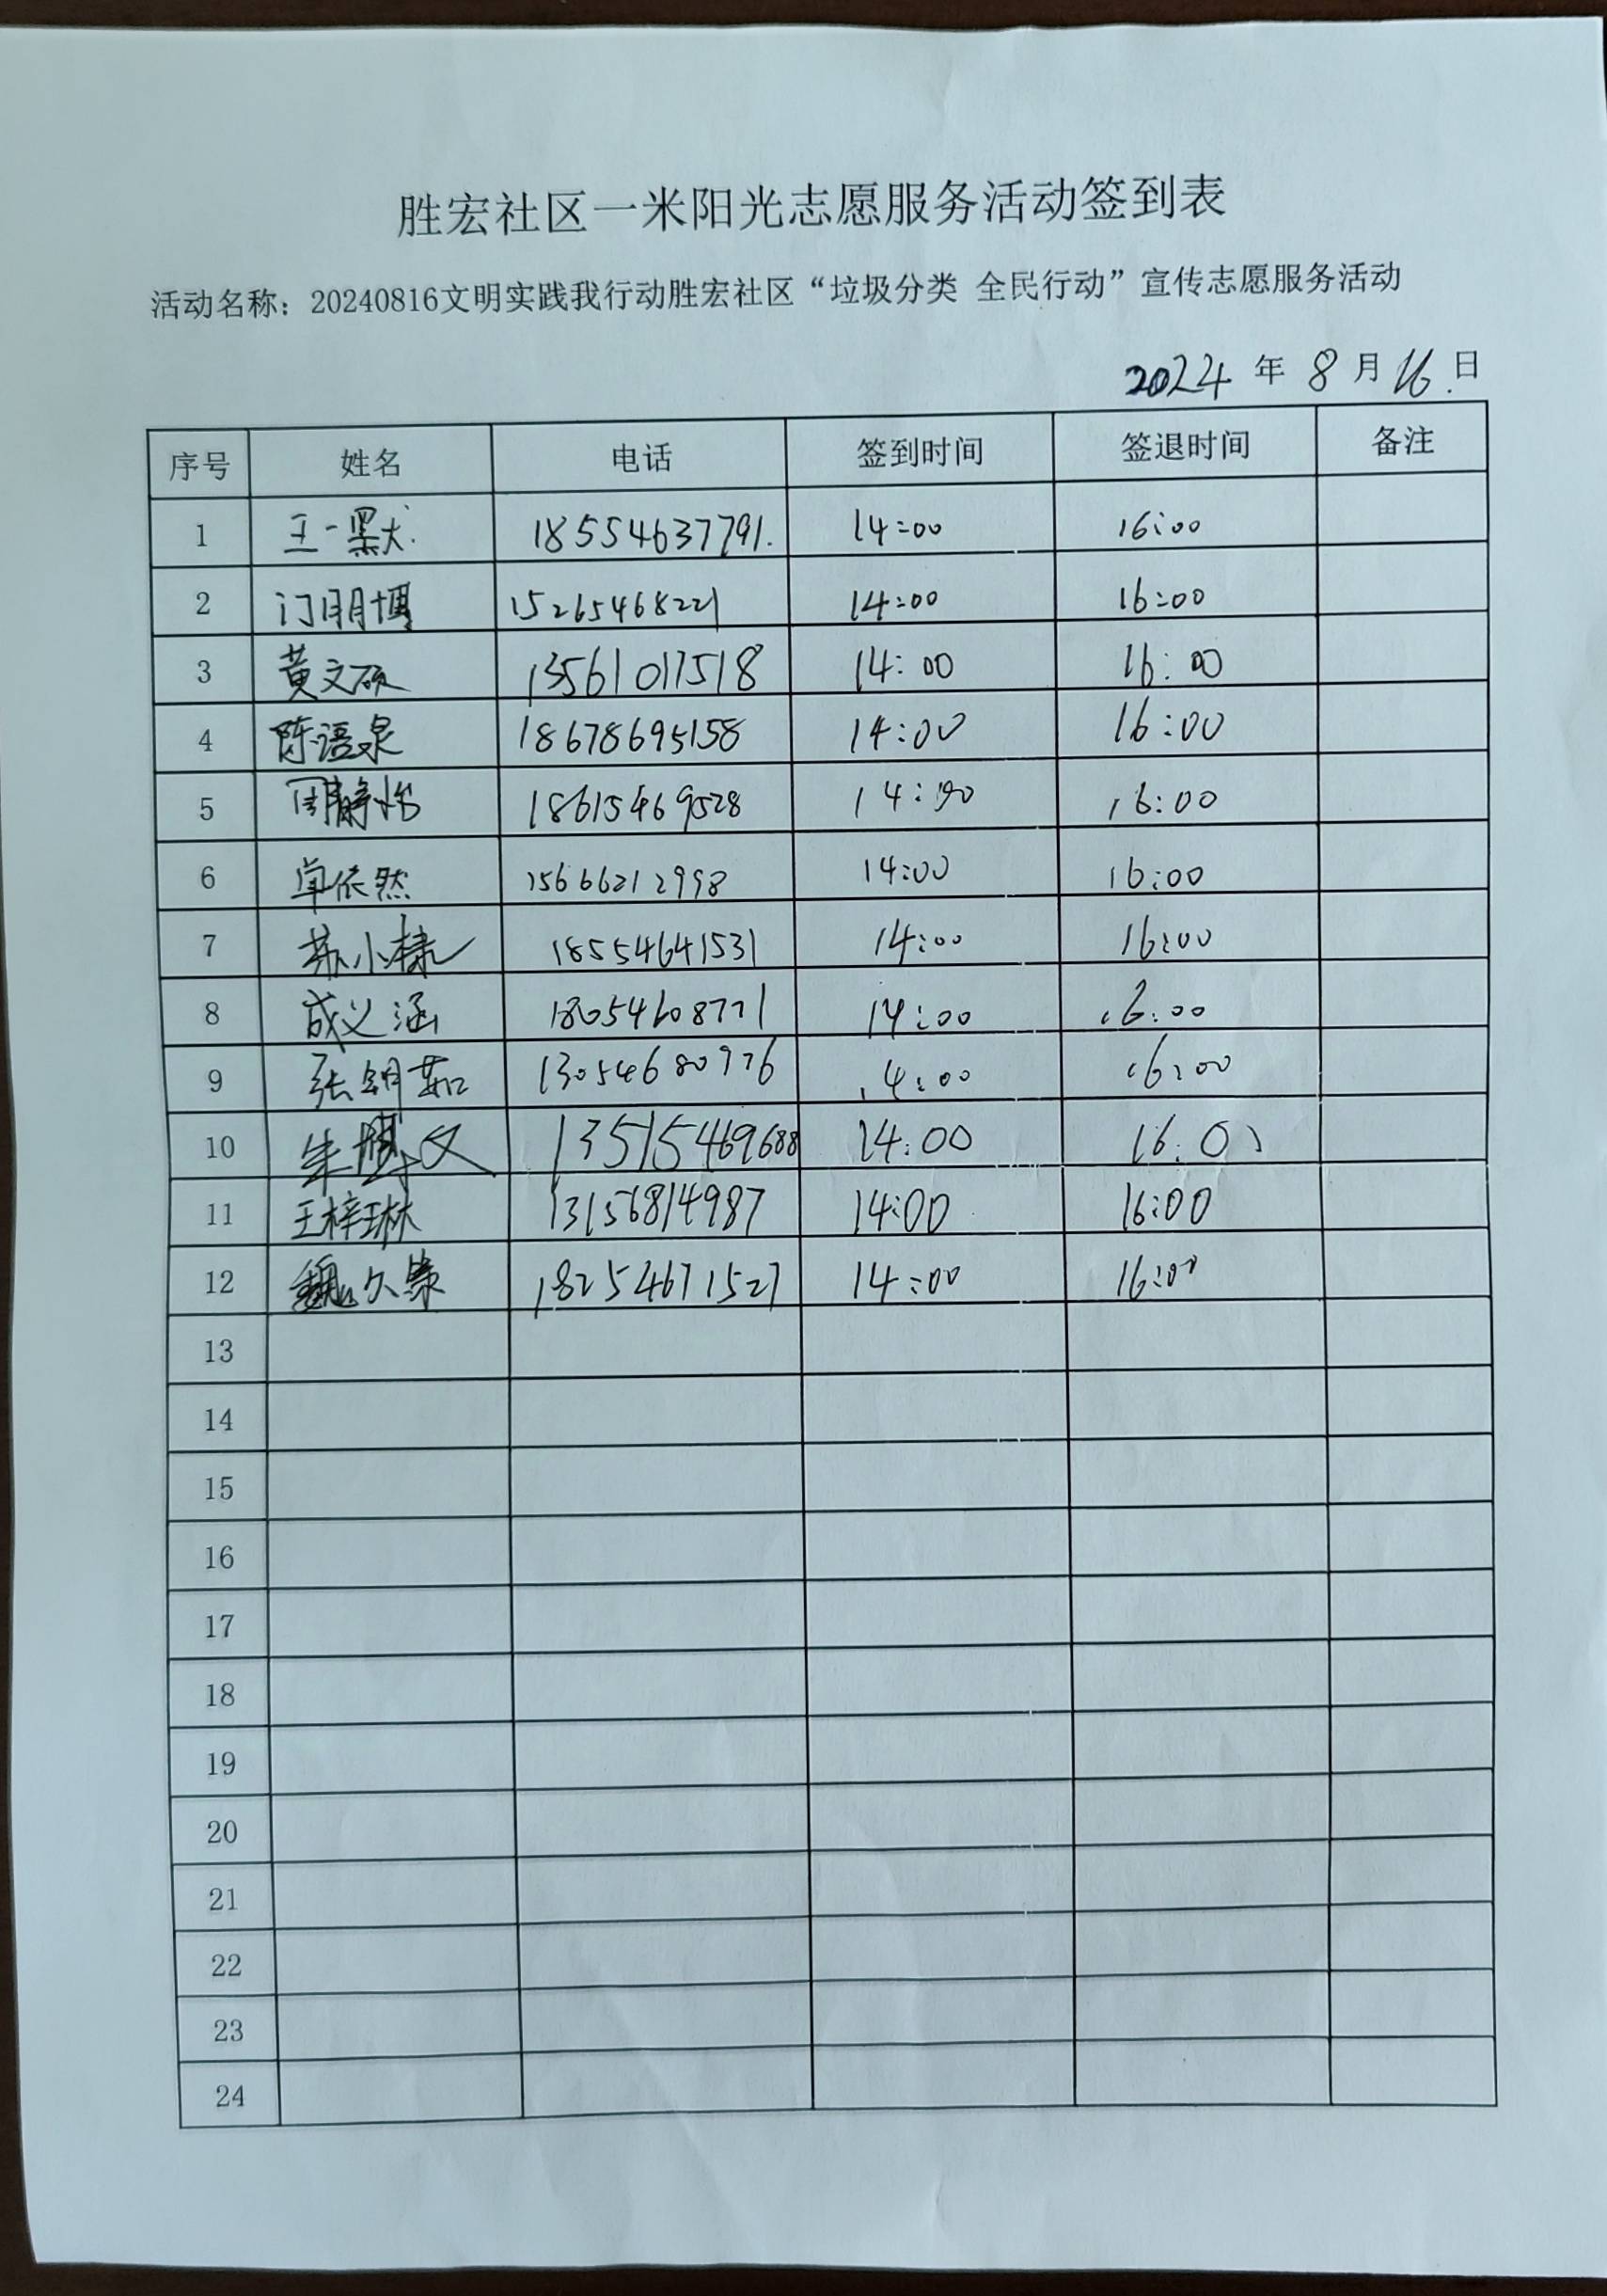 胜宏社区一米阳光志愿服务活动签到表
活动名称：20240816文明实践我行动胜宏社区“垃圾分类 全民行动”宣传志愿服务活动
2024 年 8 月 16 日
序号 姓名 电话 签到时间 签退时间 备注
1 王一默 18554637791. 14:00 16:00
2 门明博 15265468221 14:00 16:00
3 黄文硕 13561011518 14:00 16:00
4 陈语泉 18678695158 14:00 16:00
5 周静怡 18615469528 14:00 16:00
6 卓依然 15666212998 14:00 16:00
7 苏小棣 18554641531 14:00 16:00
8 成义涵 18054608771 14:00 16:00
9 张明茹 13054680976 14:00 16:00
10 朱博文 13515469688 14:00 16:00
11 王梓琳 13156814987 14:00 16:00
12 魏久 18254671527 14:00 16:00
13
14
15
16
17
18
19
20
21
22
23
24